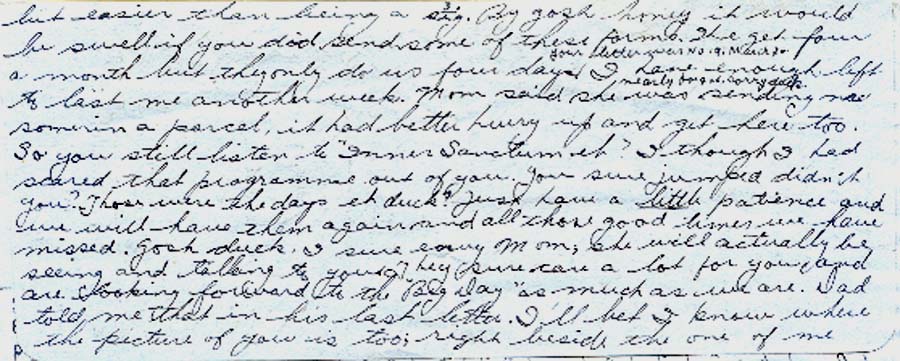 but easier than being a sig. By gosh honey it would
be swell if you did send some of these forms. We get four
your letter was No. 9. March 20
a month but they only do us four days. I have enough left
nearly forgot. Sorry duck.
to last me another week. Mom said she was sending me
some in a parcel, it had better hurry up and get here too.
So you still listen to "Inner Sanctum eh? I though I had
scared that programme out of you. You sure jumped didn't
you? Those were the days eh duck? Just have a little patience and
we will have them again and all those good times we have
missed. Gosh duck. I sure envy Mom, she will actually be
seeing and talking to you. They sure care a lot for you, and
are looking forward to the "Big Day" as much as we are. Dad
told me that in his last letter. I'll bet I know where
the picture of you is too; right beside the one of me